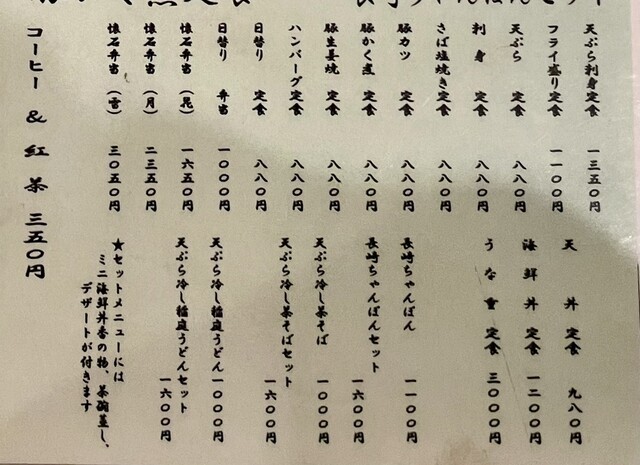 天ぷら刺身定食 一三五〇円
フライ盛り定食 一一〇〇円
天ぷら 定食 八八〇円
刺身 定食 八八〇円
さば塩焼き定食 八八〇円
豚カツ 定食 八八〇円
豚かく煮 定食 八八〇円
豚生姜焼 定食 八八〇円
ハンバーグ定食 八八〇円
日替り 定食 八八〇円
日替り 弁当 一〇〇〇円
懐石弁当(花) 一六五〇円
懐石弁当(月) 二三五〇円
懐石弁当(雪) 三〇五〇円
天丼定食 九八〇円
海鮮丼定食 一二〇〇円
うな重定食 三〇〇〇円
長崎ちゃんぽん 一一〇〇円
長崎ちゃんぽんセット 一六〇〇円
天ぷら冷し茶そば 一〇〇〇円
天ぷら冷し茶そばセット 一六〇〇円
天ぷら冷し稲庭うどん 一〇〇〇円
天ぷら冷し稲庭うどんセット 一六〇〇円
★セットメニューには
ミニ海鮮丼香の物、茶碗蒸し、
デザートが付きます
コーヒー & 紅茶 三五〇円